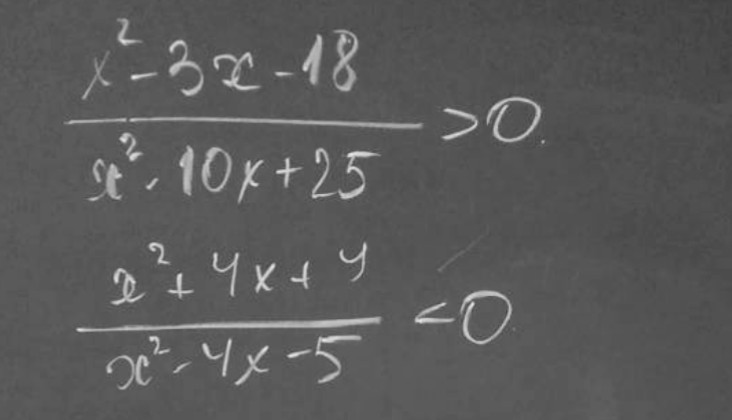 x² - 3x - 18
x² - 10x + 25
> 0.
x² + 4x + 4
x² - 4x - 5
< 0